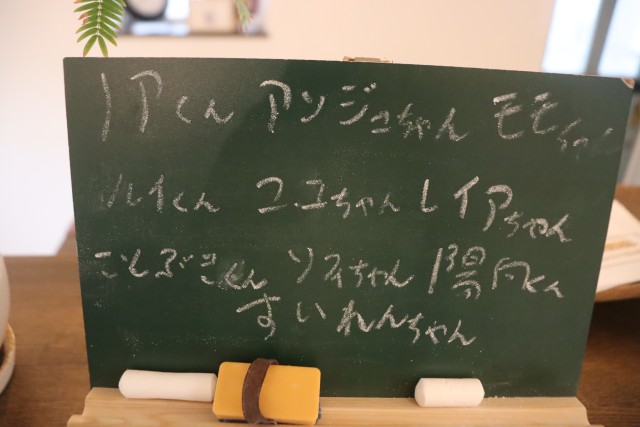 ノアくん アンジュちゃん モモちゃん
ルイくん ココちゃん レイアちゃん
ことぶきくん ソフィちゃん 陽向くん
すいれんちゃん